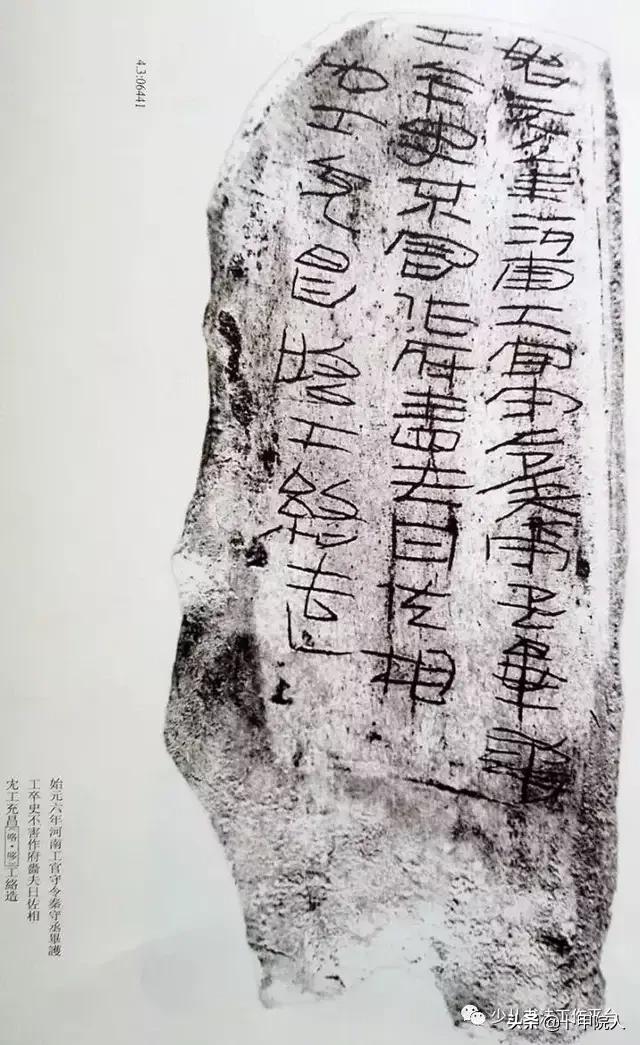 始元六年河南工官守令秦守丞畢護
工卒史不害作府嗇夫日佐相
工充昌工絡造
4.3:06441
始元六年河南工官守令秦守丞畢護
工卒史不害作府嗇夫日佐相
冗工充昌工絡造
头条